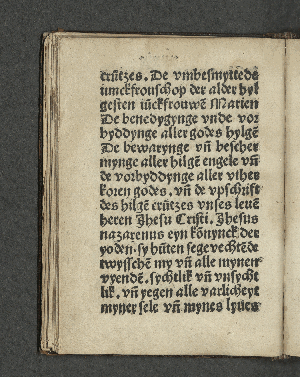 crützes. De vmbesmyttede
iunckfrouschop der alder hyl
gesten iückfrouwē Marien
De benedygynge vnde vor
byddynge aller godes hylgē
De bewarynge vn̄ bescher
mynge aller hilgē engele vn̄
de vorbyddynge aller vther
koren godes. vn̄ de vpschrift
des hilgē crützes vnses leuē
heren Jhesu Cristi. Jhesus
nazarenus eyn kōnynck der
yoden. sy hūten segevechtēde
twysschē my vn̄ alle mynen
vyendē. sychtlik vn̄ vnsycht
lik. vn̄ yegen alle varlicheyt
myner sele vn̄ mynes lyues